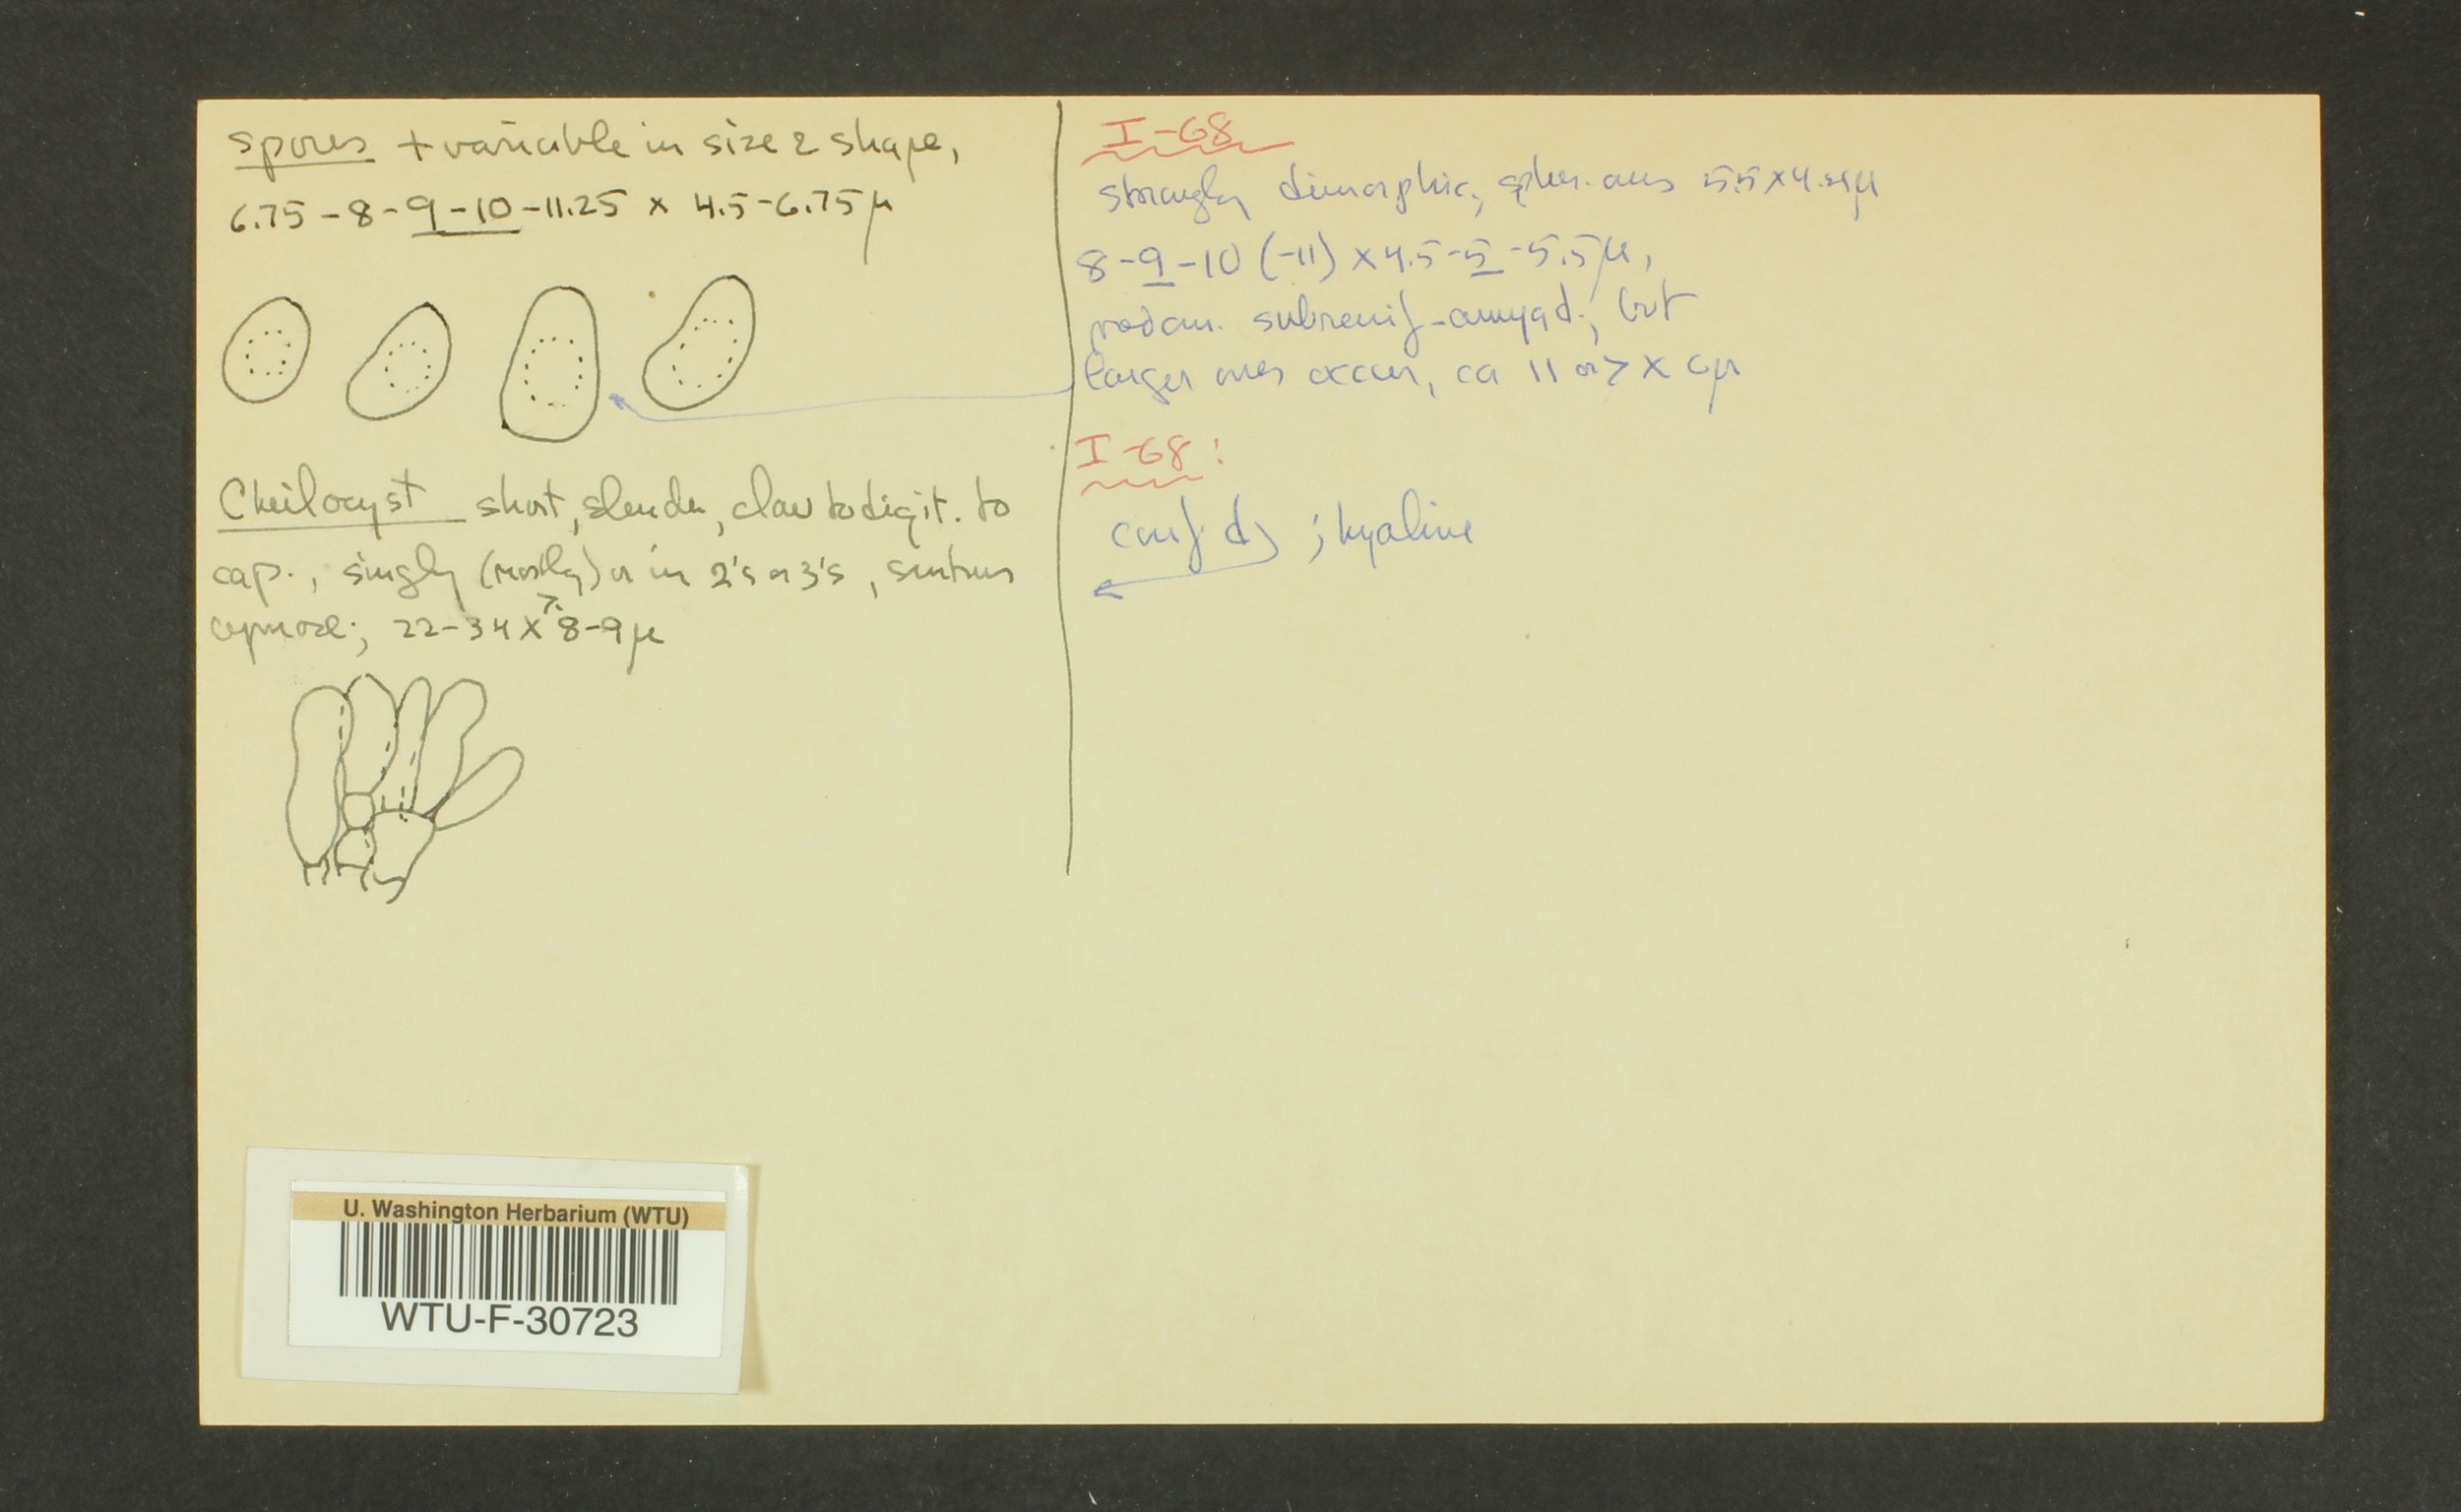 Spores + variable in size & shape,
6.75-8-9-10-11.25 x 4.5-6.75µ
Cheilocyst short, slender, clav to digit. to
cap., singly (mostly) or in 2's or 3's,
22-34 x 8-9µ
I-68
strongly dimorphic, spher. ones 5.5 x 4.
8-9-10 (-11) x 4.5-5-5.5µ,
subrenif-amygd., but
larger ones occur, ca 11 or > x 6µ
I-68:
; hyaline
U. Washington Herbarium (WTU)
WTU-F-30723